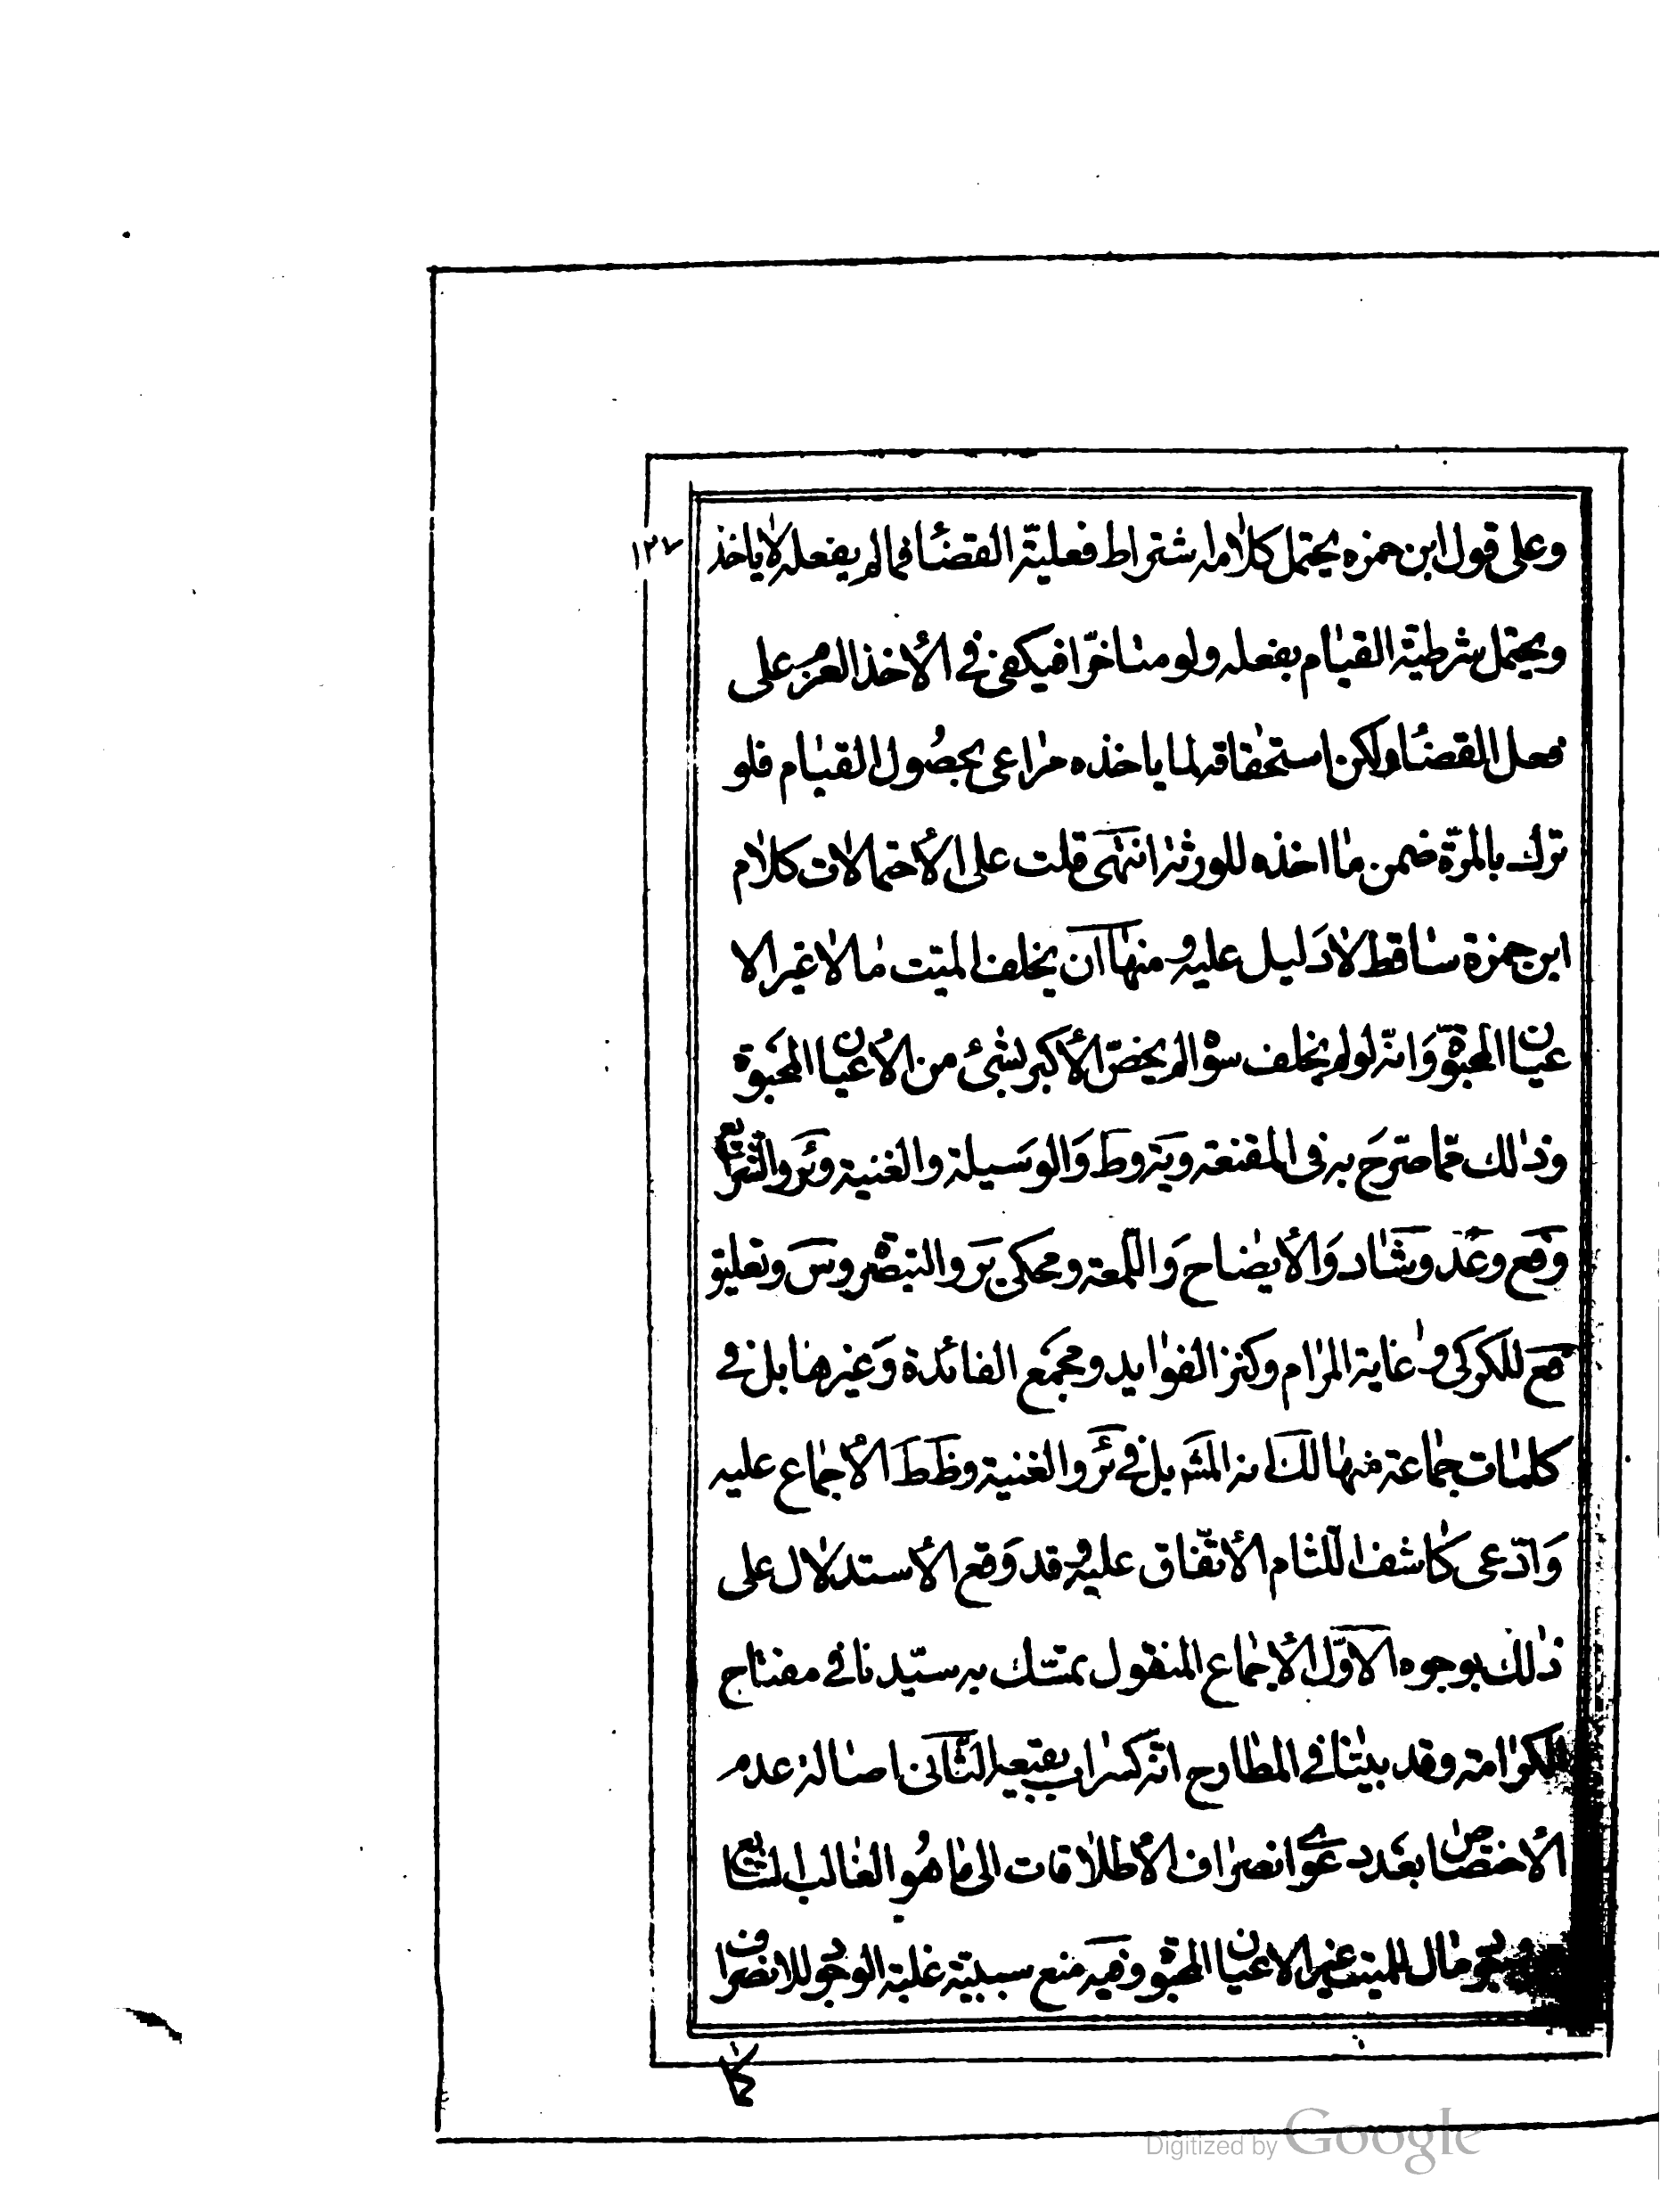 ١٢٧
وعلى قول ابن حمزه يحتمل كلامه اشتراط فعليّة القضا فمالم يفعله لا ياخذ
ويحتمل شرطيّة القيام بفعله ولو متاخّرا فيكفى فى الأخذ العزم على
فعل القضا ولكن استحقاقه لما ياخذه مراعى بحصول القيام فلو
ترك بالمرّة ضمن ما اخذه للورثة انتهى قلت على الأحتمالات كلام
ابن حمزة ساقط لا دَليل عليه و منها ان يخلف الميّت مالا غير الا
عيان المحبوّة وَانّه لو لم يخلف سواها لم يخصّ الأكبر بشئ من الأعيان المحبوة
وذلك ممّا صرّح به فى المقنعة ويَة وط وَالوسَيلة والغنية وئر والشرايع
وفع وعد وشاد وَالأيضاح وَاللّمعة ومحكى ير والتبصرة وس وتعليق
فع للكركى و غاية المرام وكنز الفوايد ومجمَع الفائدة وَغيرها بل فى
كلمات جماعة منها لك انه المشَ بل فى ئر والغنية وظَط الأجماع عليه
وَادّعى كاشف اللّثام الأتّفاق عليه و قد وَقع الأستدلال على
ذلك بوجوه الاوّل الأجماع المنقول تمسّك به سيّدنا فى مفتاح
الكرامة وقد بيّنا فى المطارح انّه كسراب بقيعة الثّانى اصالة عدم
الأختصاص بعَد دعوى انصراف الأطلاقات الى ما هُو الغالب الشايع
مال للميت غير الاعيان المحبوّة وفيه منع سببيّة غلبة الوجود للانصراف
كما
Digitized by Google